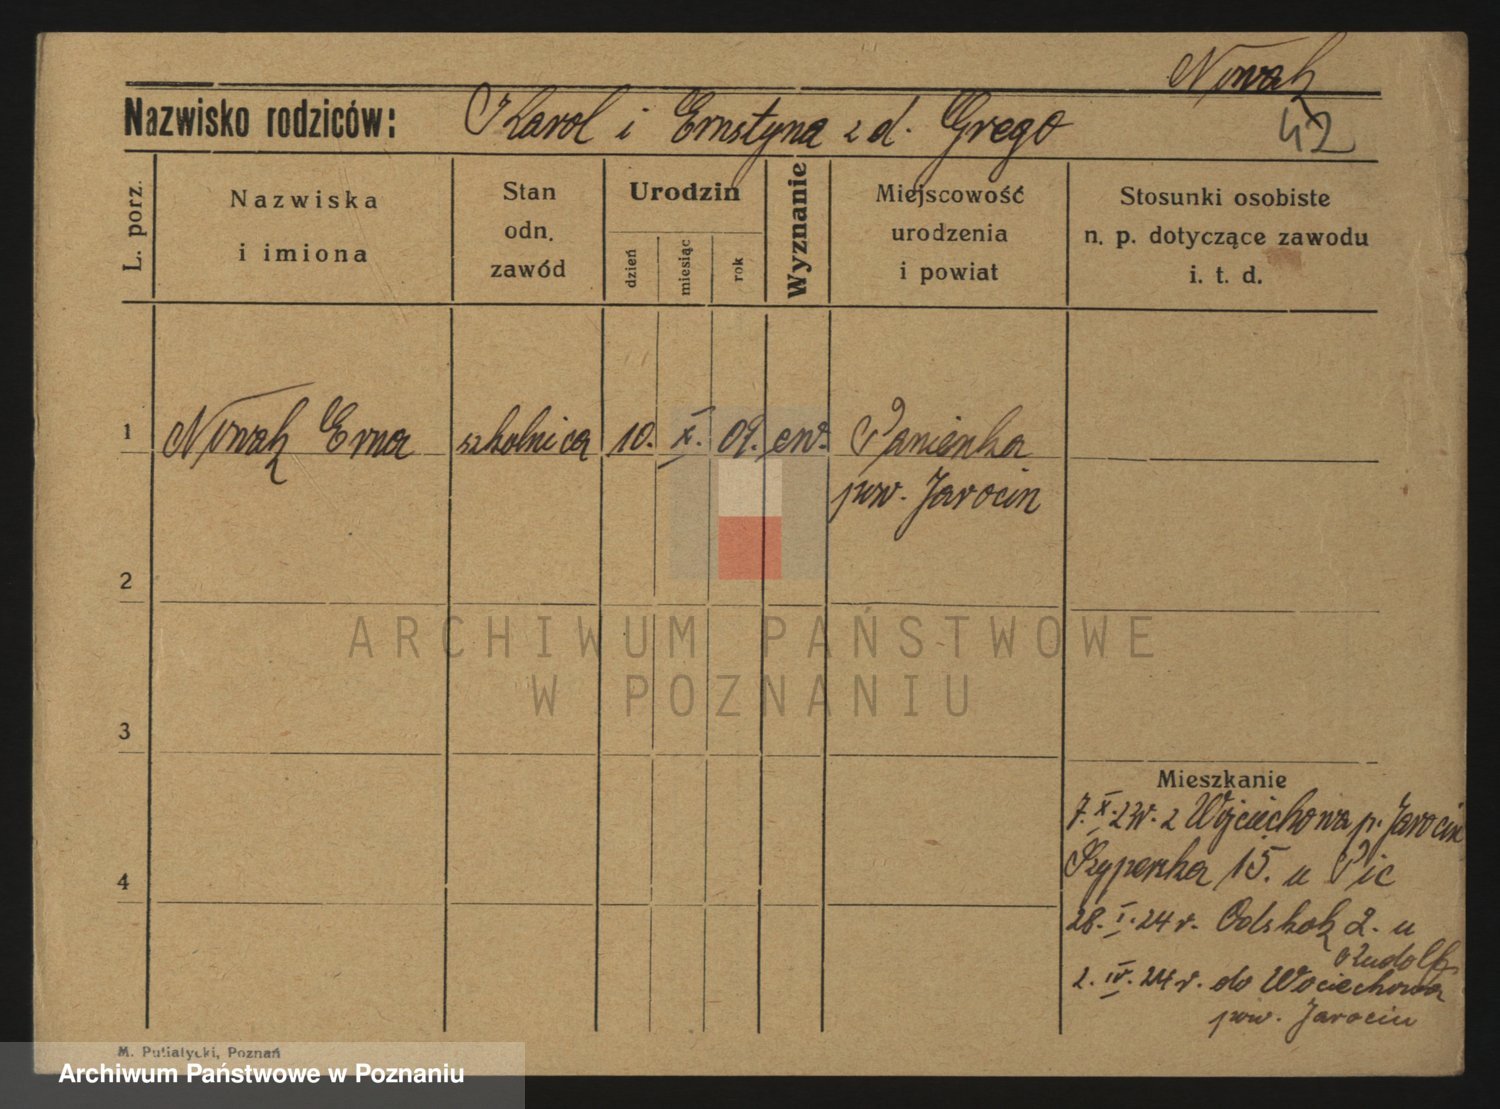 Nowak
Nazwisko rodziców: Karol i Ernstyna z d. Grego
42
L. porz.
Nazwiska
i imiona
Stan
odn.
zawód
Urodzin
dzień
miesiąc
rok
Wyznanie
Miejscowość
urodzenia
i powiat
Stosunki osobiste
n. p. dotyczące zawodu
i. t. d.
1 Nowak Erna szkolnica 10. X. 09. ew. Panienka
pow. Jarocin
2
ARCHIWUM PAŃSTWOWE
W POZNANIU
3
Mieszkanie
7. X. 23r. z Wojciechowa p. Jarocin
15. u Pic
4
28. I. 24 r. Odskok 2. u
Rudolf
2. IV. 24 r. do Wociechowa
pow. Jarocin
M. Putiatycki, Poznań
Archiwum Państwowe w Poznaniu